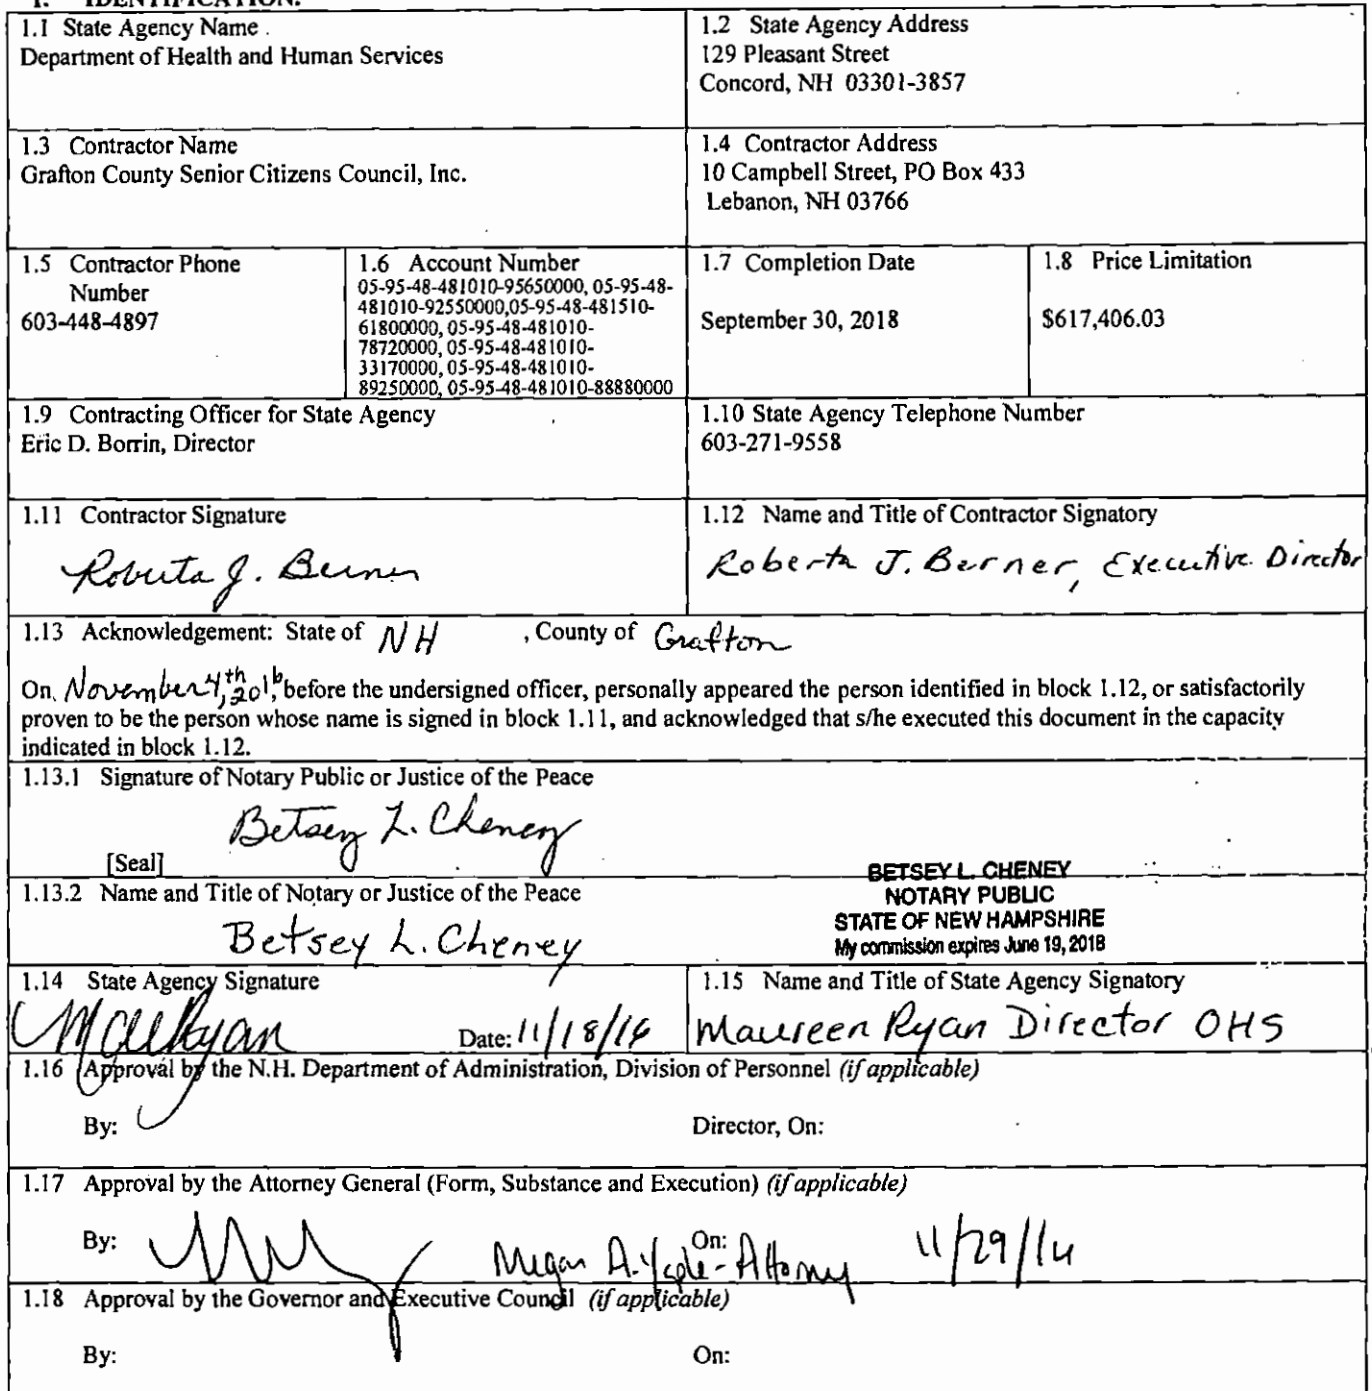 1. IDENTIFICATION.
1.1 State Agency Name
Department of Health and Human Services
1.2 State Agency Address
129 Pleasant Street
Concord, NH 03301-3857
1.3 Contractor Name
Grafton County Senior Citizens Council, Inc.
1.4 Contractor Address
10 Campbell Street, PO Box 433
Lebanon, NH 03766
1.5 Contractor Phone
Number
603-448-4897
1.6 Account Number
05-95-48-481010-95650000, 05-95-48-
481010-92550000,05-95-48-481510-
61800000, 05-95-48-481010-
78720000, 05-95-48-481010-
33170000, 05-95-48-481010-
89250000, 05-95-48-481010-88880000
1.7 Completion Date
September 30, 2018
1.8 Price Limitation
$617,406.03
1.9 Contracting Officer for State Agency
Eric D. Borrin, Director
1.10 State Agency Telephone Number
603-271-9558
1.11 Contractor Signature
Roberta J. Berner
1.12 Name and Title of Contractor Signatory
Roberta J. Berner, Executive Director
1.13 Acknowledgement: State of NH , County of Grafton
On, November 4th, 2016, before the undersigned officer, personally appeared the person identified in block 1.12, or satisfactorily
proven to be the person whose name is signed in block 1.11, and acknowledged that s/he executed this document in the capacity
indicated in block 1.12.
1.13.1 Signature of Notary Public or Justice of the Peace
Betsey L. Cheney
[Seal]
1.13.2 Name and Title of Notary or Justice of the Peace
Betsey L. Cheney
BETSEY L. CHENEY
NOTARY PUBLIC
STATE OF NEW HAMPSHIRE
My commission expires June 19, 2018
1.14 State Agency Signature
Date: 11/18/16
1.15 Name and Title of State Agency Signatory
Maureen Ryan Director OHS
1.16 Approval by the N.H. Department of Administration, Division of Personnel (if applicable)
By: Director, On:
1.17 Approval by the Attorney General (Form, Substance and Execution) (if applicable)
By: Megan A. - Attorney On: 11/29/16
1.18 Approval by the Governor and Executive Council (if applicable)
By: On: